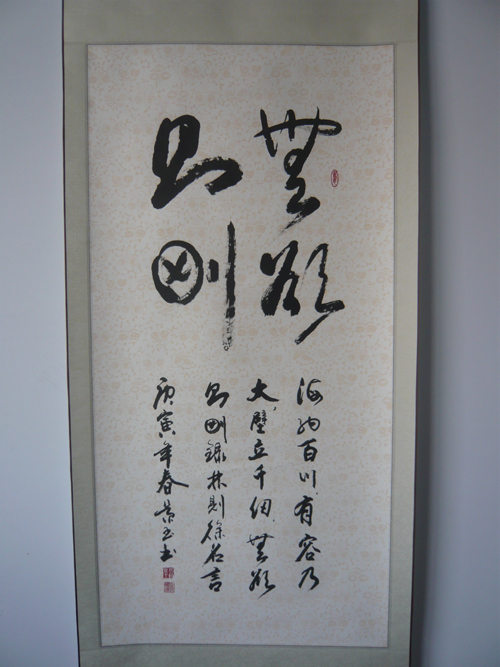 無欲
則剛
海納百川有容乃
大壁立千仞無欲
則剛錄林則徐名言
庚寅年春景玉书